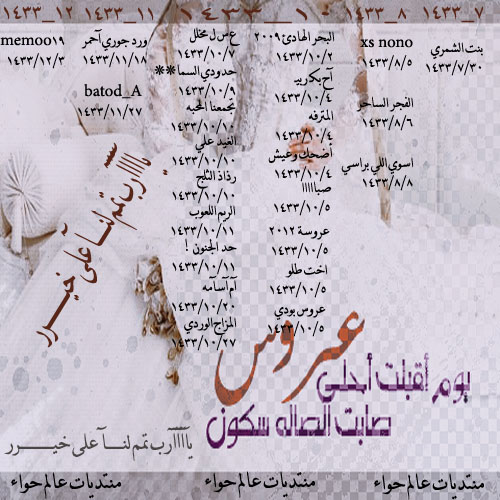 ١٤٣٣_٧
١٤٣٣_٨
١٤٣٣_١٠
١٤٣٣_١١
١٤٣٣_١٢
بنت الشمري
١٤٣٣/٧/٣٠
xs nono
١٤٣٣/٨/٥
الفجر الساحر
١٤٣٣/٨/٦
اسوي اللي براسي
١٤٣٣/٨/٨
البحر الهادئ ٢٠٠٩
١٤٣٣/١٠/٢
١٤٣٣/١٠/٤
المترفه
١٤٣٣/١٠/٤
أضحك وعيش
١٤٣٣/١٠/٤
صبااااا
١٤٣٣/١٠/٥
عروسة ٢٠١٢
١٤٣٣/١٠/٥
اخت طلو
١٤٣٣/١٠/٥
عروس بودي
١٤٣٣/١٠/٥
ع س ل مخلل
١٤٣٣/١٠/٧
حدودي السما**
١٤٣٣/١٠/٩
تجمعنا المحبه
١٤٣٣/١٠/١٠
الغيد علي
١٤٣٣/١٠/١٠
رذاذ الثلج
١٤٣٣/١٠/١٠
الريم اللعوب
١٤٣٣/١٠/١١
حد الجنون !
١٤٣٣/١٠/١١
١٤٣٣/١٠/٢٠
المزاج الوردي
١٤٣٣/١٠/٢٧
ورد جوري آحمر
١٤٣٣/١١/١٨
batod_A
١٤٣٣/١١/٢٧
memoo١٩
١٤٣٣/١٢/٣
ياااارب تمم لنا على خيرر
عروس
يوم أقبلت أحلى
صابت الصاله سكون
يااااارب تمم لنا على خيرر
منتديات عالم حواء
منتديات عالم حواء
منتديات عالم حواء